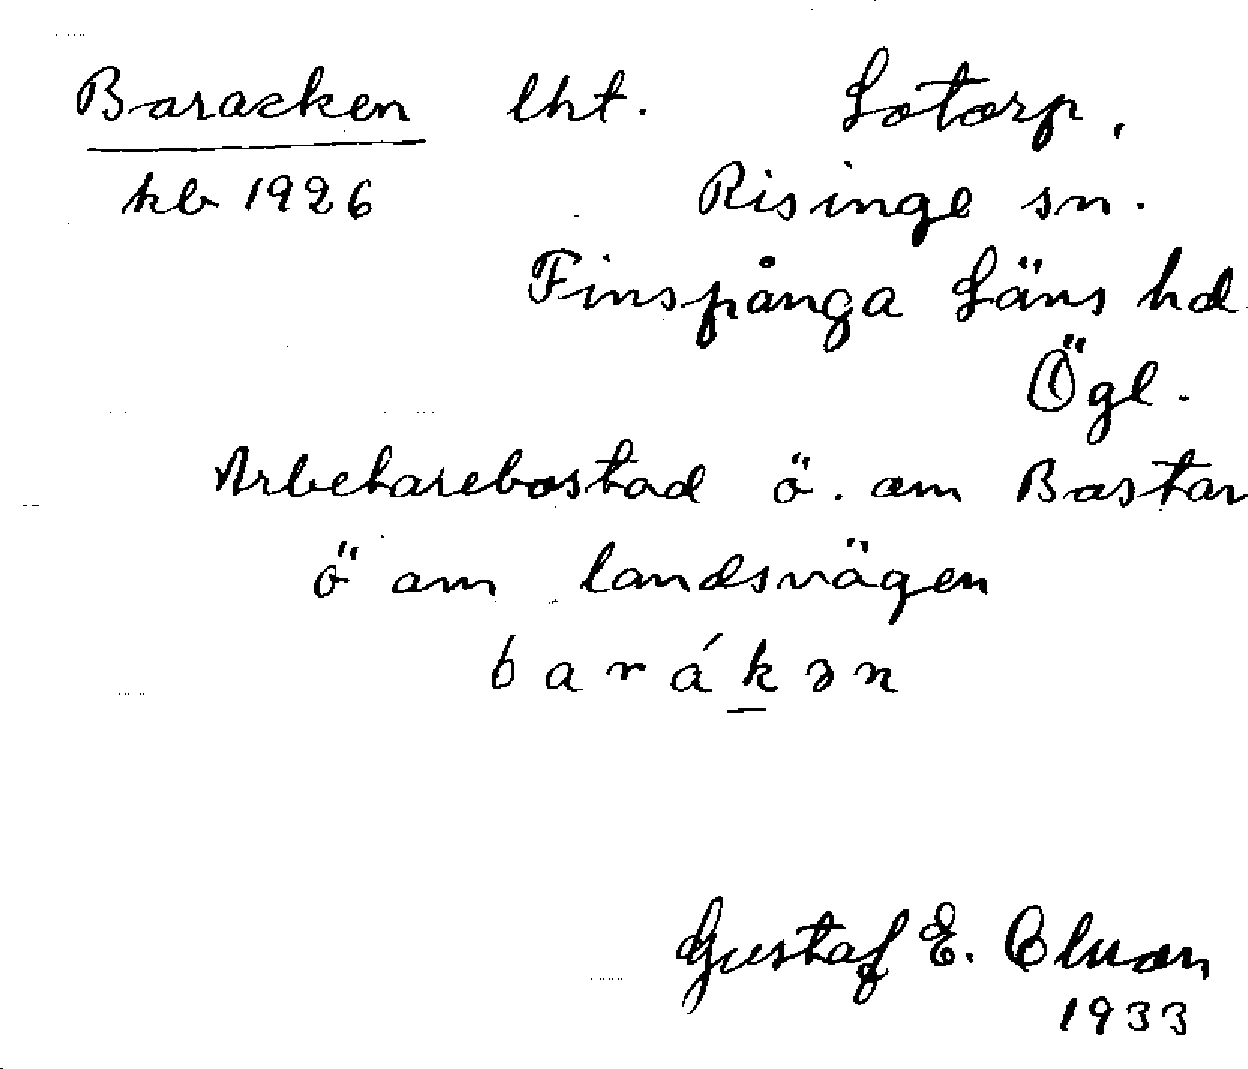 Baracken lht. Lotorp,
kb 1926 Risinge sn.
Finspånga Läns hd
Ögl.
Arbetarebostad ö. om Bastar
ö om landsvägen
barákən
Gustaf E. Bluon
1933